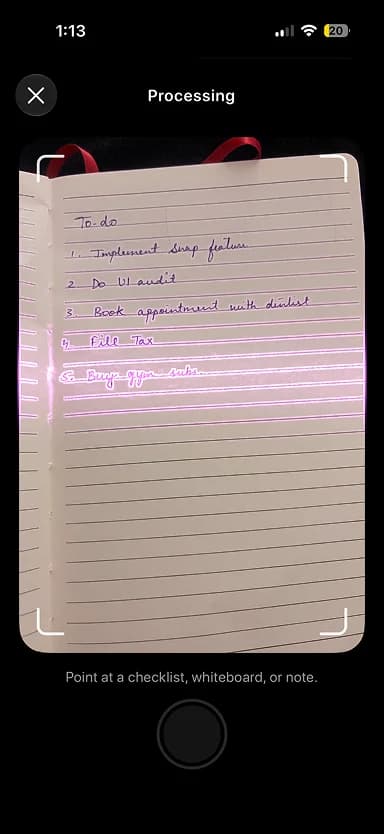 1:13
20
Processing
To-do
1. Implement Snap feature
2. Do UI audit
3. Book appointment with dentist
4. File Tax
5. Buy gym subs.
Point at a checklist, whiteboard, or note.